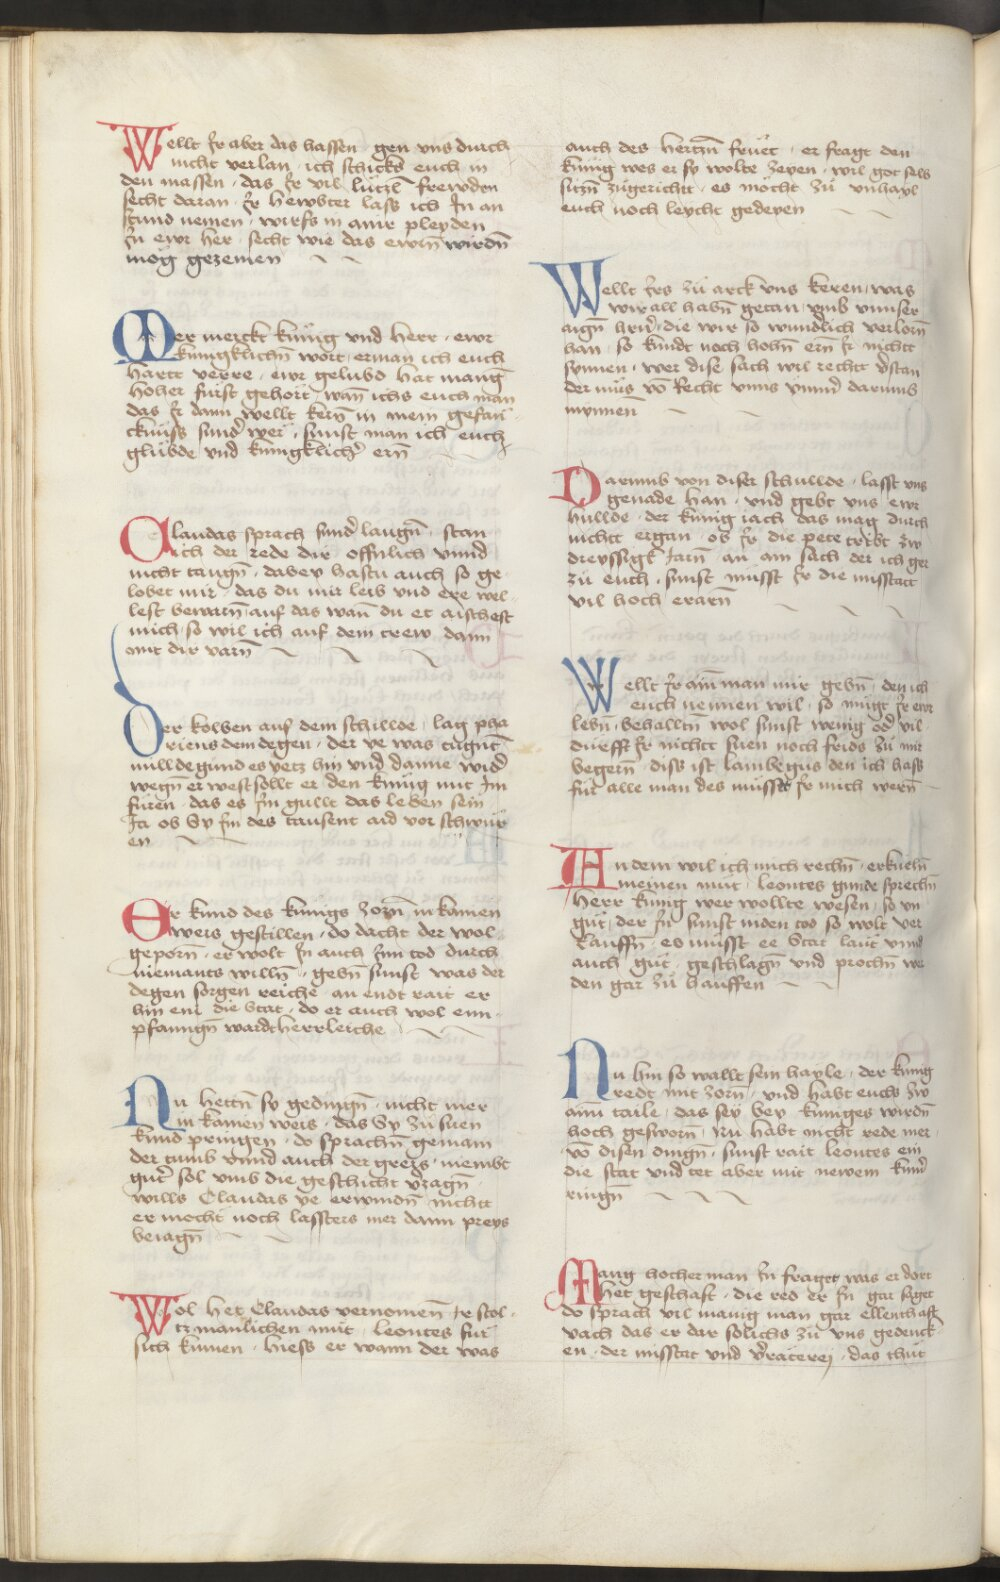 Wellt ir aber das hassen · gen vns durch
nicht verlan · ich schicks euch in
den massen · das ir vil lutzl frewden
secht daran · ir hewbter lass ich In an
stund nemen · wirfs in amr pleyden
In ewr her · secht wie das ewrñ wirdñ
mög gezemen
Der merckt künig vnd herr · ewr
künigklichñ wort · erman ich euch
hartt verre · ewr gelubd hat mang
hoher furst gehort · wan ichs euch man
das ir dann wellt kerñ in mein gefan
cknuss sund wer · sunst man ich euch
glubde vnd künigklich erñ
Claudas sprach sund laugñ · stan
ich der rede dir · offnlich vnnd
nicht taugñ · dabey hastu auch so ge
lobet mir · das du mir leib vnd ere wel
lest bewarñ auf das wañ du et aischest
mich · so wil ich auf dem trew dann
mit dir varñ
Der kolben auf dem schillde · lag pha
riens dem degen · der ye was tugnt
millde gund es yetz hin vnd danne wid
wegñ er west sollt er den künig mit Im
füren · das es im gullt das leben sein
Ja ob Sy im des tausent aid vor schwür
en
Er kund des künigs zorñ in kainen
weis gestillen · do dacht der wol
geporñ · er wolt In auch inn tod durch
niemants willñ · gebñ sunst was der
degen sorgen reiche · an endt rait er
hin ein die Stat · do er auch wol em
pfanngñ wardt herrleiche
Nu hettñ sy gedingñ · nicht mer
in kainen weis · das Sy zu suen
kund pringen · do sprachñ gemain
der tumb vnnd auch der greis · niembt
gut sol vmb die geschicht vragñ
wills Claudas ye erwindñ nichtt
er mocht noch lassters mer dann preys
beiagñ
Wol het Claudas vernomeñ Ir stol
tz manlichen mut · leontes für
sich kumen · hiess er wann der was
auch des hertzñ fruet · er fragt den
künig wes er sy wolte zeyen · wil got säls
sitzñ zugerichtt · es möcht zu vnhayl
euch noch leycht gedeyen
Wellt irs zu arck vns keren · was
wir all habñ getan · vmb vnnser
aigñ hrñ · die wir so wundlich verlorñ
han · so kundt noch hohñ erñ ir nichtt
synnen · wer dise sach wil rechtt vstan
der mus võ Recht vnns vnnd darumb
mynnen
Darumb von diser schullde · lasst vns
genade han · vnd gebt vns ewr
hullde · der künig iach das mag durch
nichtt ergan · ob ir die pete tribt zw
dreyssigk Jarñ · an am sach der ich ger
zu euch · sunst müsst ir die misstatt
vil hoch erarñ
Wellt ir ain man mir gebñ · den ich
euch nennen wil · so mügt ir ewr
lebñ · behalltñ wol sunst wenig od vil
duefft ir nichtt suen noch frids zu mir
begerñ · diss ist lambegus den ich hass
für alle man des müsst ir mich werñ
An dem wil ich mich rechñ · erkuelñ
meinen mut · leontes gunde sprechñ
herr künig wer wollte wesen · so vn
gut · der in sunst inden tod so wolt ver
kauffñ · es müsst ee Stat laut vnnd
auch gut · geschlagñ vnd prochñ wer
den gar zu hauffen
Nu hin so wallt sein hayle · der künig
redt mit zorñ · vnd habt euch zw
aim taile · das sey bey küniges wirdñ
hoch gesworñ · Nu habt nicht rede mer
võ disen dingñ · sunst rait leontes ein
die stat vnd tet aber mit newem kumr
ringñ
Mang hocher man in fraget was er dort
het geschaft · die red er in gar saget
do sprach vil manig man gar ellenthaft
vach das er dar solichs zu vns gedenck
en · der misstat vnd vräterej · das thut